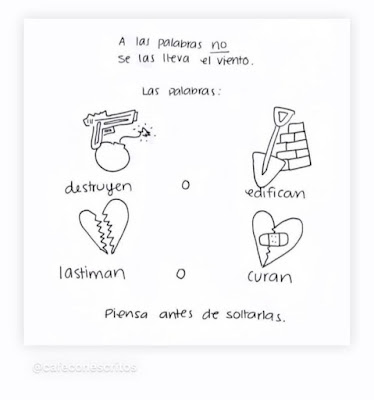 A las palabras no
se las lleva el viento.
Las palabras:
destruyen o edifican
lastiman o curan
Piensa antes de soltarlas.
@cafeconescritos